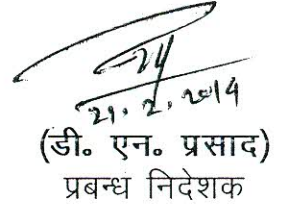 21.2.2014
(डी॰ एन॰ प्रसाद)
प्रबन्ध निदेशक